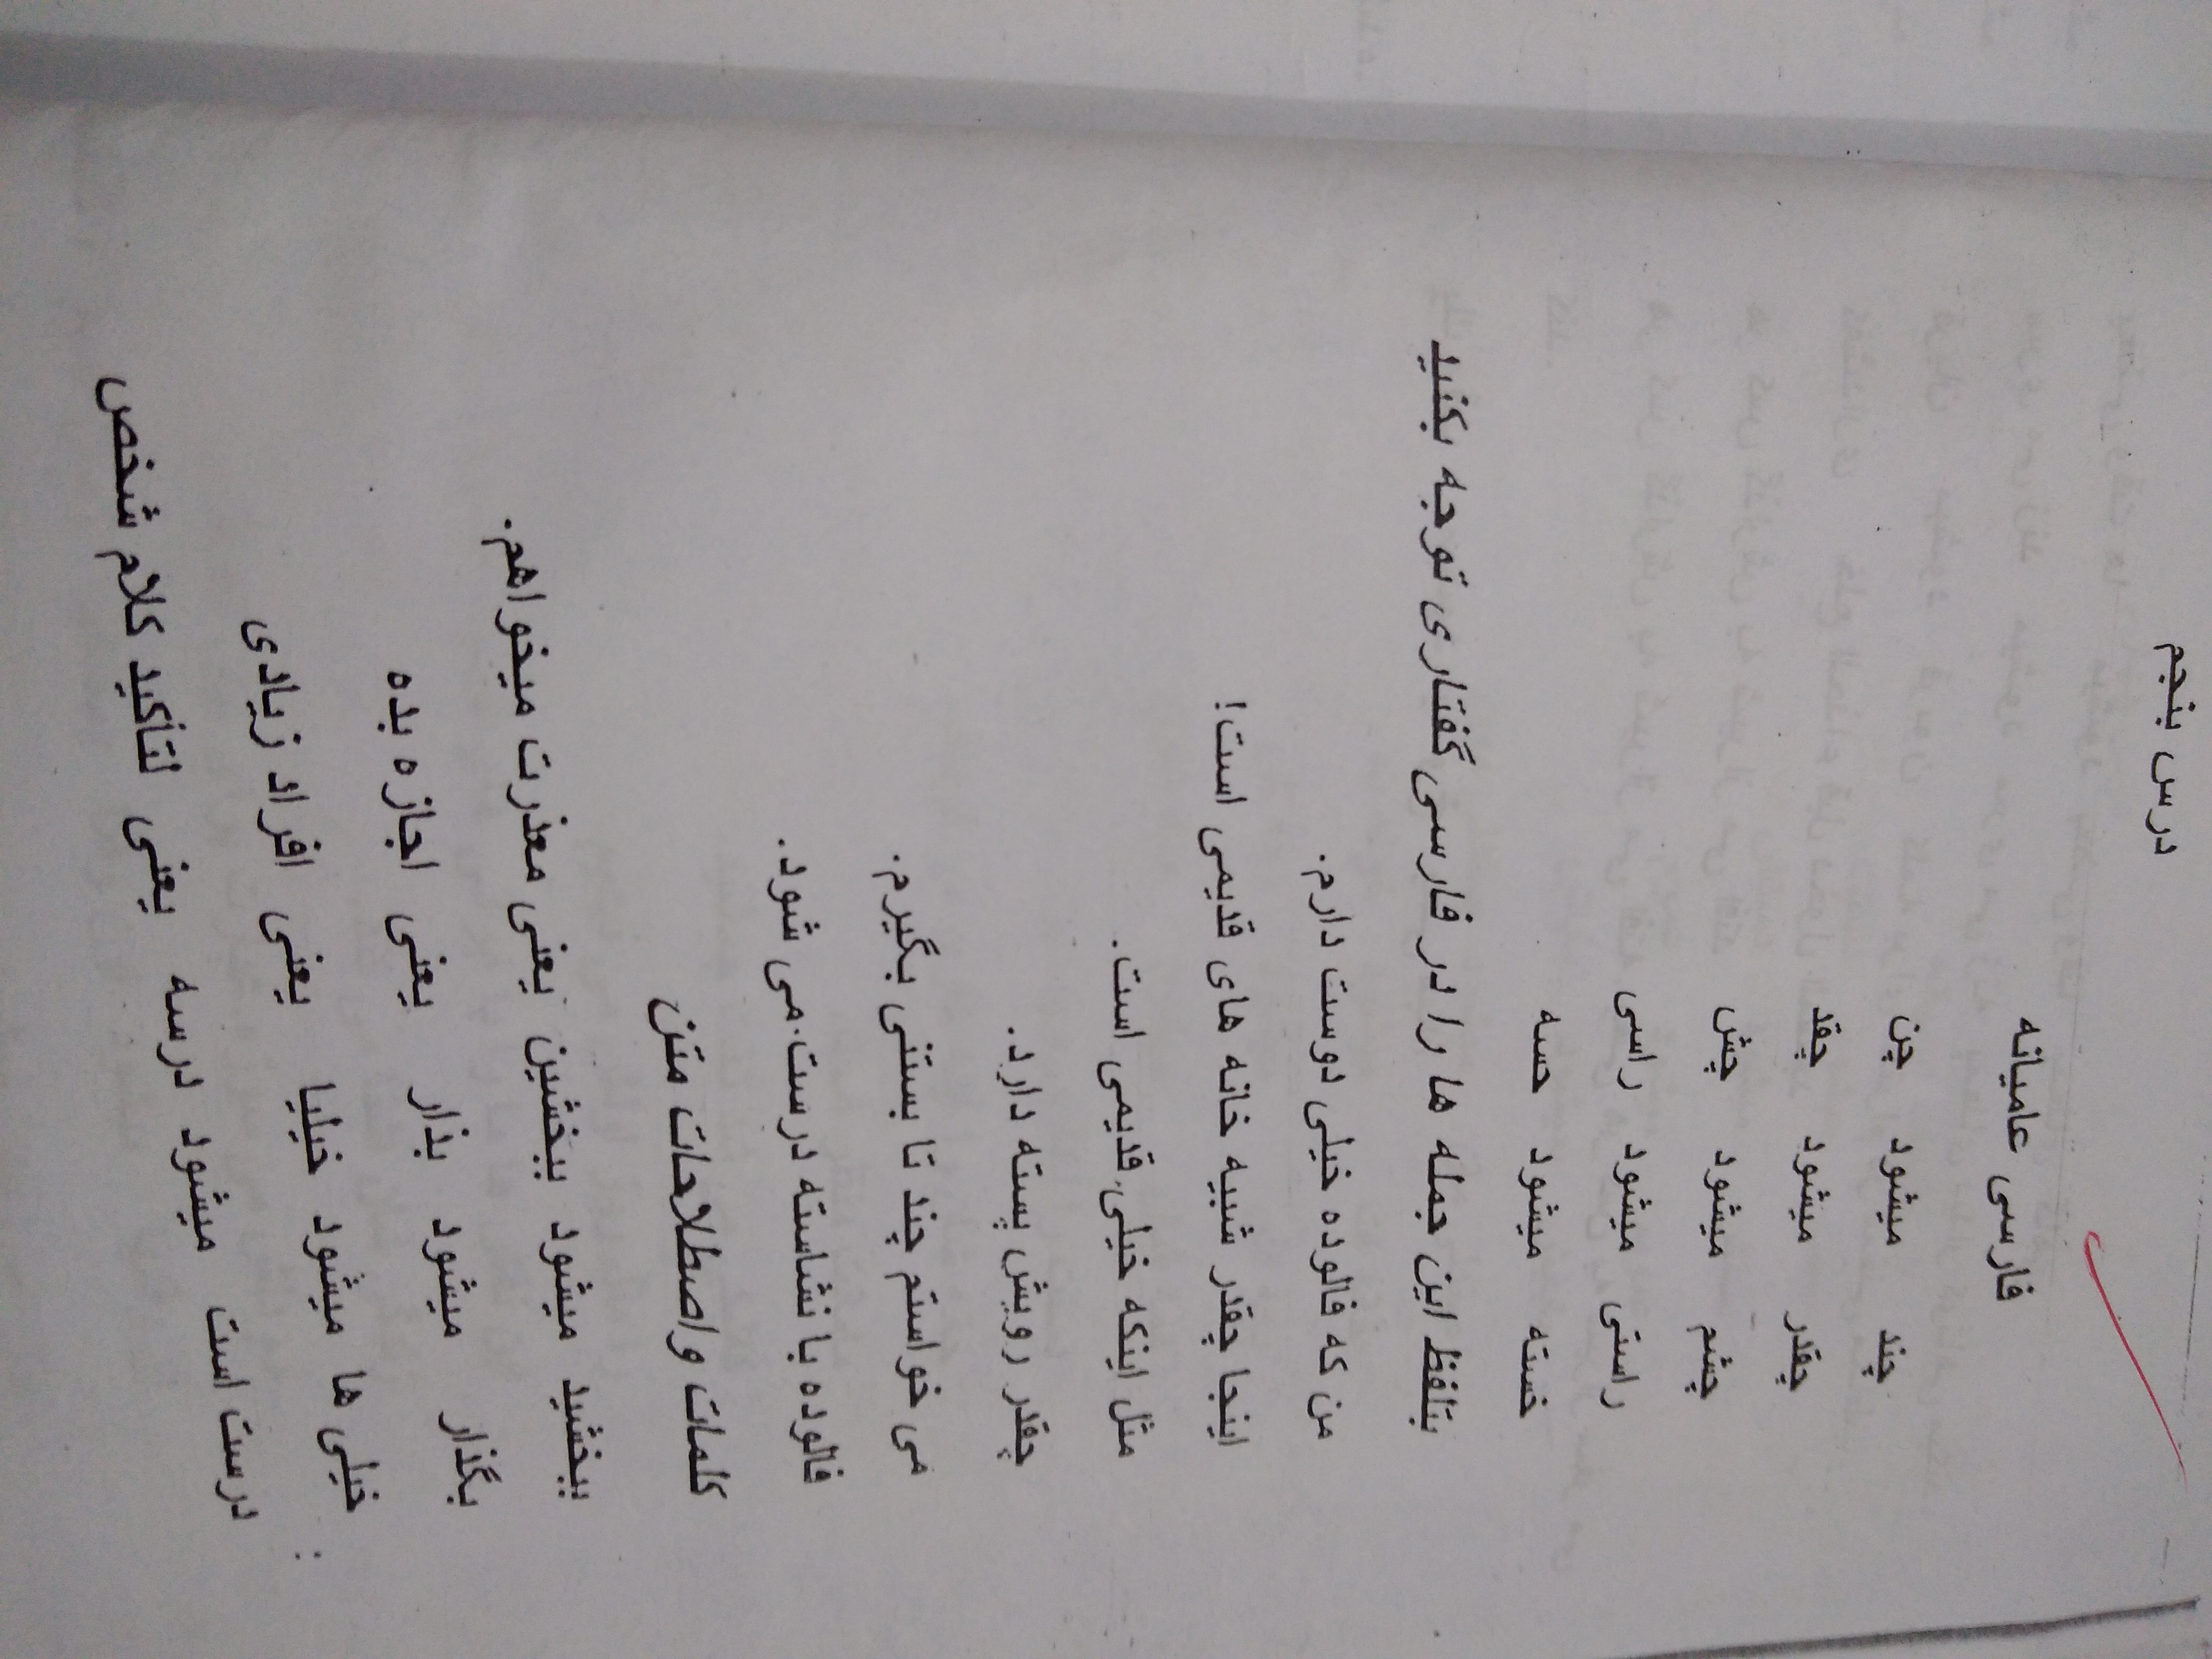 درس پنجم
فارسی عامیانه
چند میشود چن
چقدر میشود چقد
چشم میشود چش
راستی میشود راسی
خسته میشود خسه
بتلفظ این جمله ها را در فارسی گفتاری توجه بکنید
من که فالوده خیلی دوست دارم.
اینجا چقدر شبیه خانه های قدیمی است!
مثل اینکه خیلی قدیمی است.
چقدر رویش پسته دارد.
می خواستم چند تا بستنی بگیرم.
فالوده با نشاسته درست می شود.
کلمات واصطلاحات متن
ببخشید میشود ببخشین یعنی معذرت میخواهم.
بگذار میشود بذار یعنی اجازه بده
خیلی ها میشود خیلیا یعنی افراد زیادی
درست است میشود درسه یعنی لتأکید کلام شخص